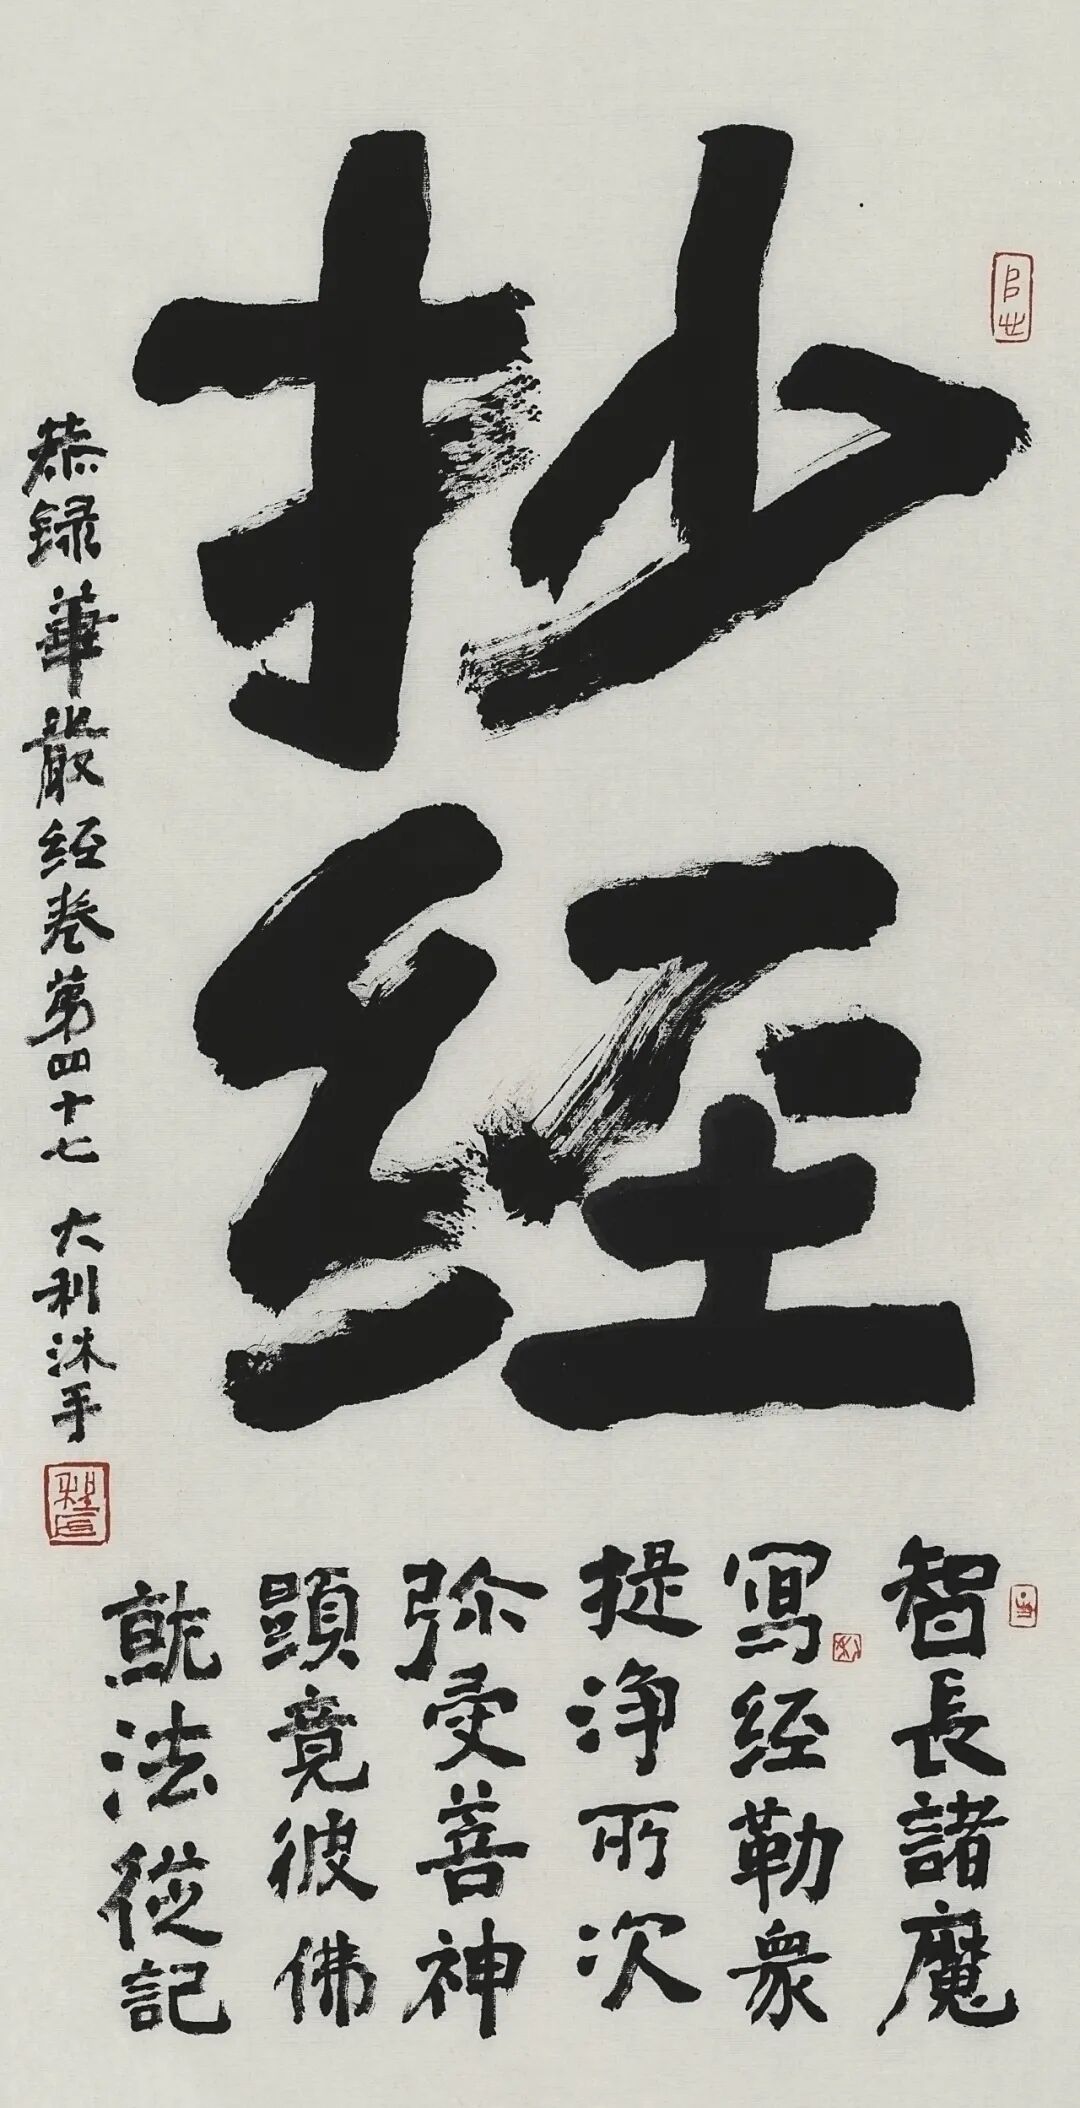 抄经
智長諸魔
寫经勒衆
提浄所次
弥受菩神
顕竟彼佛
就法從記
恭録華嚴经卷第四十七 大利沐手